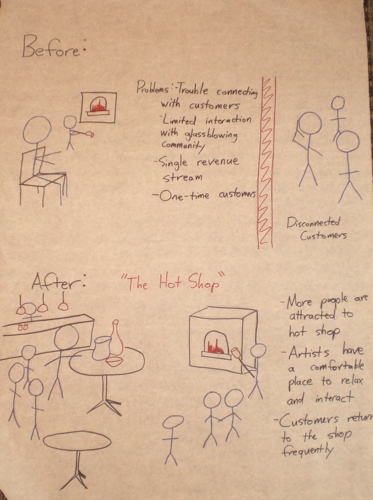 Before:
Problems:-Trouble connecting
with customers
-Limited interaction
with glassblowing
community
-Single revenue
stream
-One-time customers
Disconnected
Customers
After: "The Hot Shop"
-More people are
attracted to
hot shop
-Artists have
a comfortable
place to relax
and interact
-Customers return
to the shop
frequently